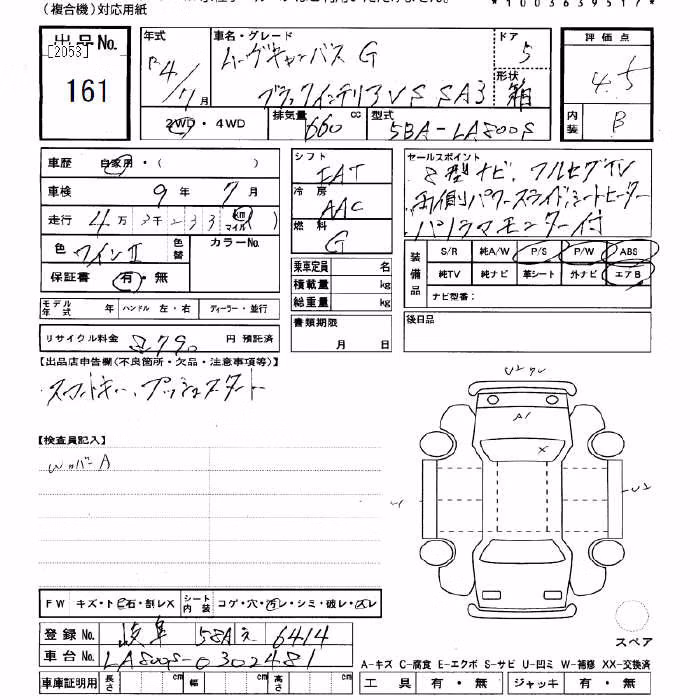 (複合機)対応用紙
*1003639517*
出品No.
[2053]
161
年式
R4/7月
車名・グレード
ムーヴキャンバス G
ブラックインテリアVS SA3
ドア
5
形状
箱
2WD・4WD
排気量
660 cc
型式
5BA-LA800S
評価点
4.5
内装
B
車歴 自家用・( )
車検 9年 7月
走行 4万3千233 km マイル ( )
色 ワインII 色替 カラーNo.
保証書 有・無
モデル年式 年 ハンドル 左・右 ディーラー・並行
リサイクル料金 円 預託済
シフト
FAT
冷房
AAC
燃料
G
乗車定員 名
積載量 kg
総重量 kg
書類期限
月 日
セールスポイント
8型ナビ、フルセグTV
両側パワースライド、シートヒーター
パノラマモニター付
装備品
S/R 純A/W P/S P/W ABS
純TV 純ナビ 革シート 外ナビ エアB
ナビ型番:
後日品
【出品店申告欄(不良箇所・欠品・注意事項等)】
スマートキー、プッシュスタート
【検査員記入】
WカバーA
A1
X
U2
FW キズ・ト石・割レX シート内装 コゲ・穴・汚レ・シミ・破レ・スレ
登録No. 岐阜 581 え 6414
車台No. LA800S-0302481
車庫証明用 長さ cm 幅 cm 高さ cm
スペア
A-キズ C-腐食 E-エクボ S-サビ U-凹ミ W-補修 XX-交換済
工具 有・無 ジャッキ 有・無